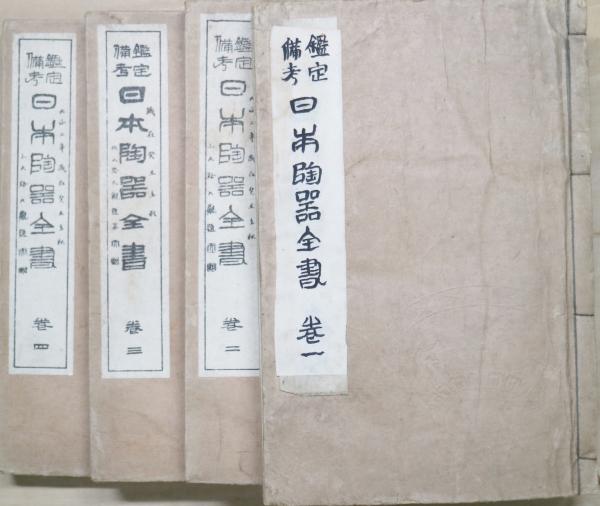 鑑定
備考
日本陶器全書
卷一
鑑定
備考
日本陶器全書
卷二
鑑定
備考
日本陶器全書
卷三
鑑定
備考
日本陶器全書
卷四